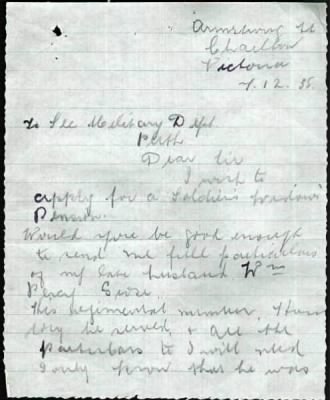 Armstrong St
Chailton
Victoria
7.12.35.
To Sec Military Dept
Perth
Dear Sir
I wish to
apply for a Soldiers widows
Pension.
Would you be good enough
to send me full particulars
of my late husband Wm
Percy
His regimental number, How
long he served, & all the
particulars to I will need
I only know that he was